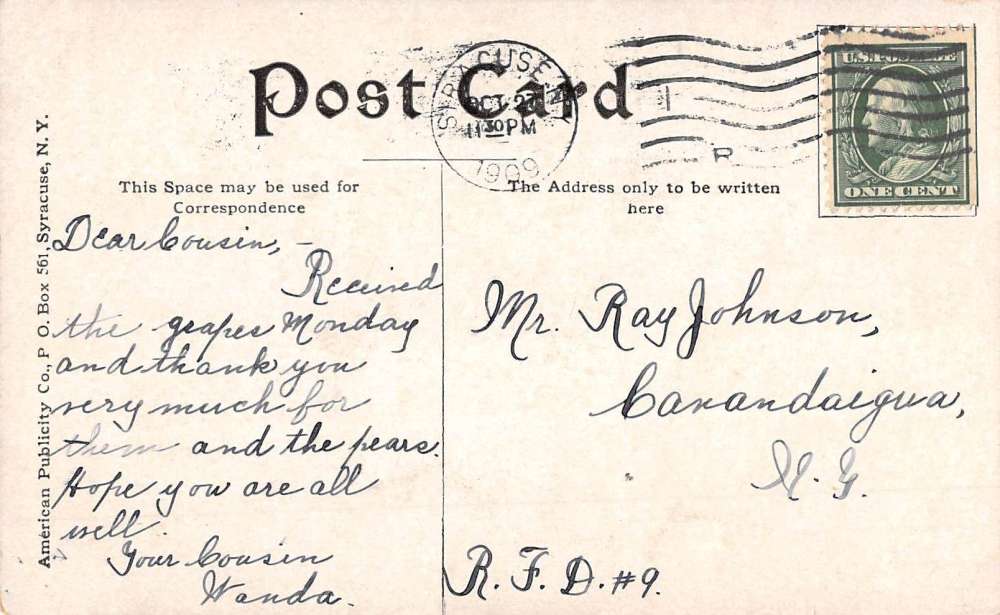 Post Card
SYRACUSE, N.Y.
OCT 27
11 30 PM
1909
R
U.S. POSTAGE
ONE CENT
This Space may be used for
Correspondence
The Address only to be written
here
American Publicity Co., P O. Box 561, Syracuse, N. Y.
Dear Cousin, –
Received
the grapes Monday
and thank you
very much for
them and the pears.
Hope you are all
well.
Your Cousin
Wanda.
Mr. Ray Johnson,
Canandaigua,
N. Y.
R. F. D. #9.